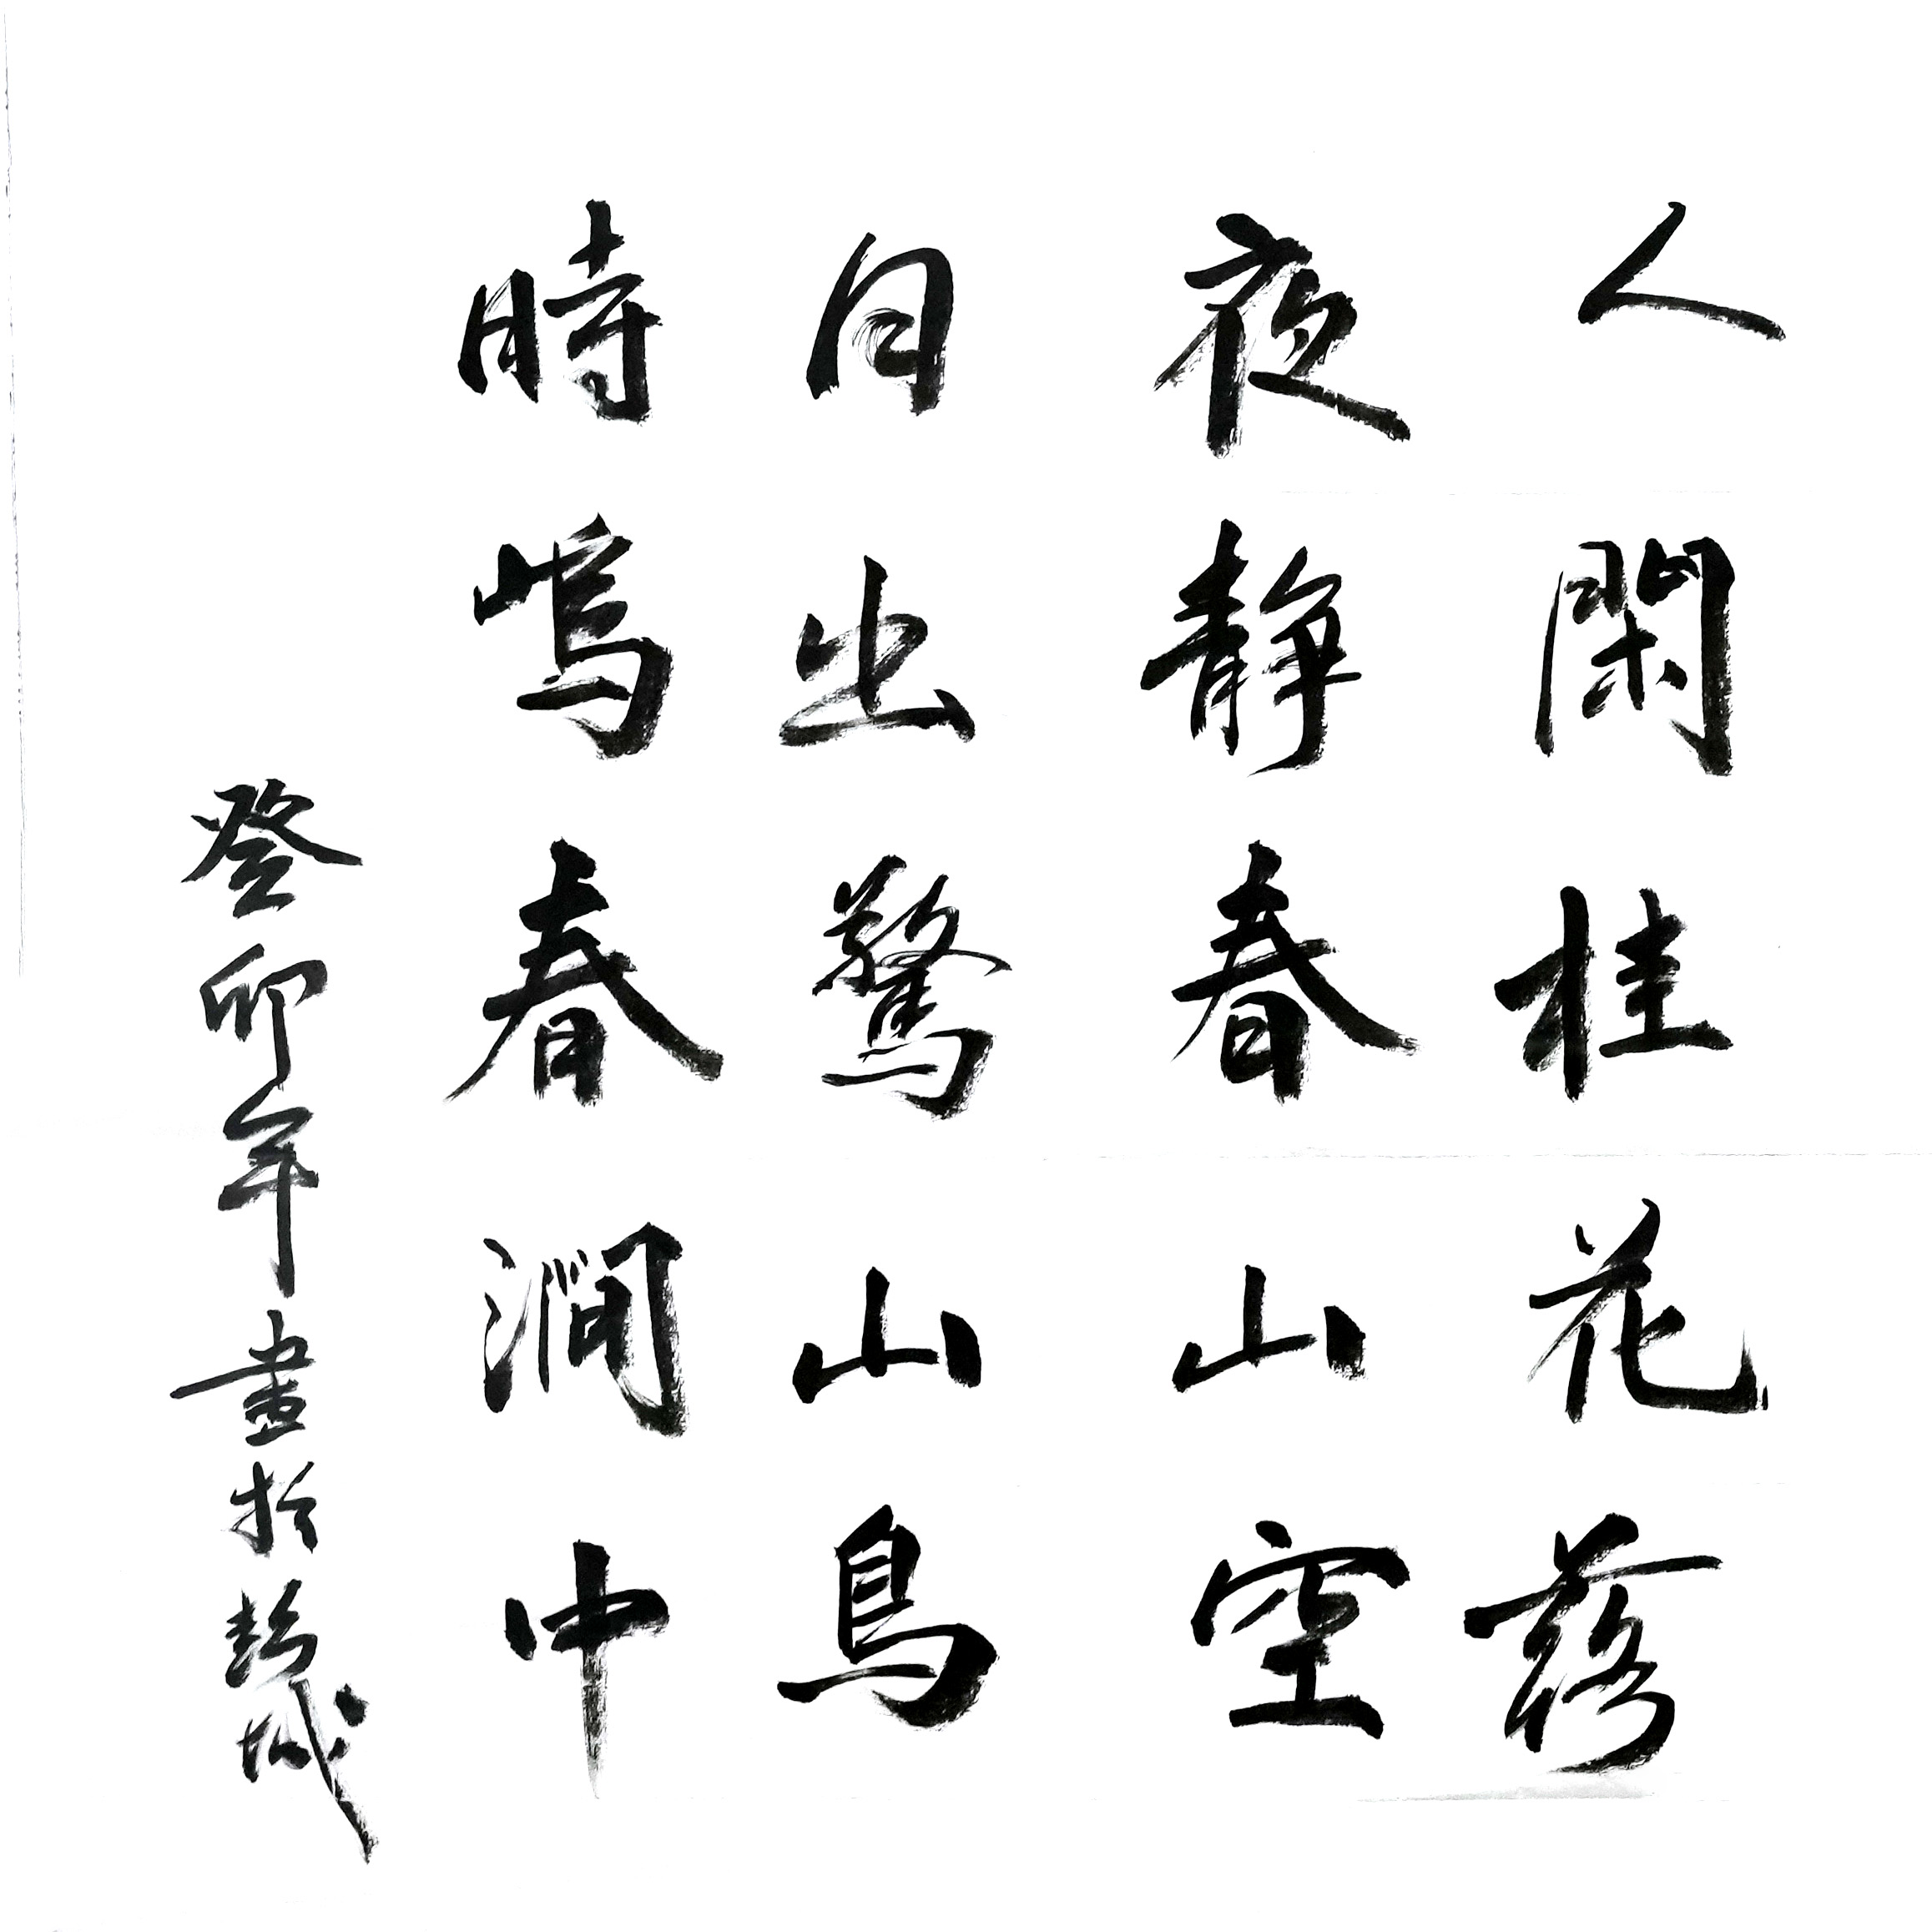 人閑桂花落
夜静春山空
月出驚山鳥
時鳴春澗中
癸卯年畫於彭城